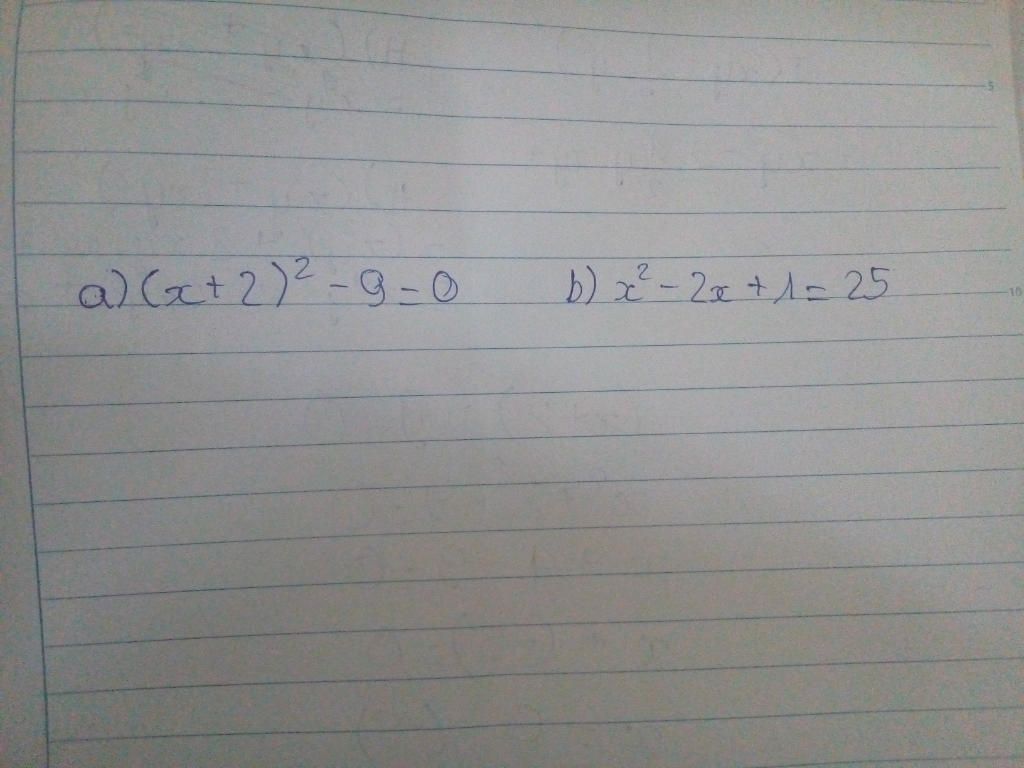 a) (x+2)² - 9 = 0 b) x² - 2x + 1 = 25
5
10